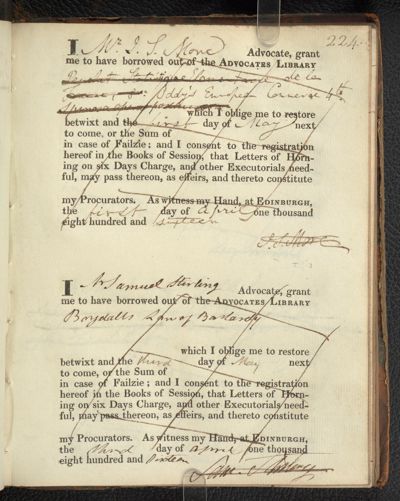 224
I Mr J. S. More Advocate, grant
me to have borrowed out of the ADVOCATES LIBRARY
de la
Oddy's European Commerce 4to
which I oblige me to restore
betwixt and the first day of May next
to come, or the Sum of
in case of Failzie; and I consent to the registration
hereof in the Books of Session, that Letters of Horn-
ing on six Days Charge, and other Executorials need-
ful, may pass thereon, as effeirs, and thereto constitute
my Procurators. As witness my Hand, at EDINBURGH,
the first day of April one thousand
eight hundred and sixteen
J. S. More
I Mr Samuel Stirling Advocate, grant
me to have borrowed out of the ADVOCATES LIBRARY
Law of Bastardy
which I oblige me to restore
betwixt and the third day of May next
to come, or the Sum of
in case of Failzie; and I consent to the registration
hereof in the Books of Session, that Letters of Horn-
ing on six Days Charge, and other Executorials need-
ful, may pass thereon, as effeirs, and thereto constitute
my Procurators. As witness my Hand, at EDINBURGH,
the third day of April one thousand
eight hundred and sixteen
Sam Stirling